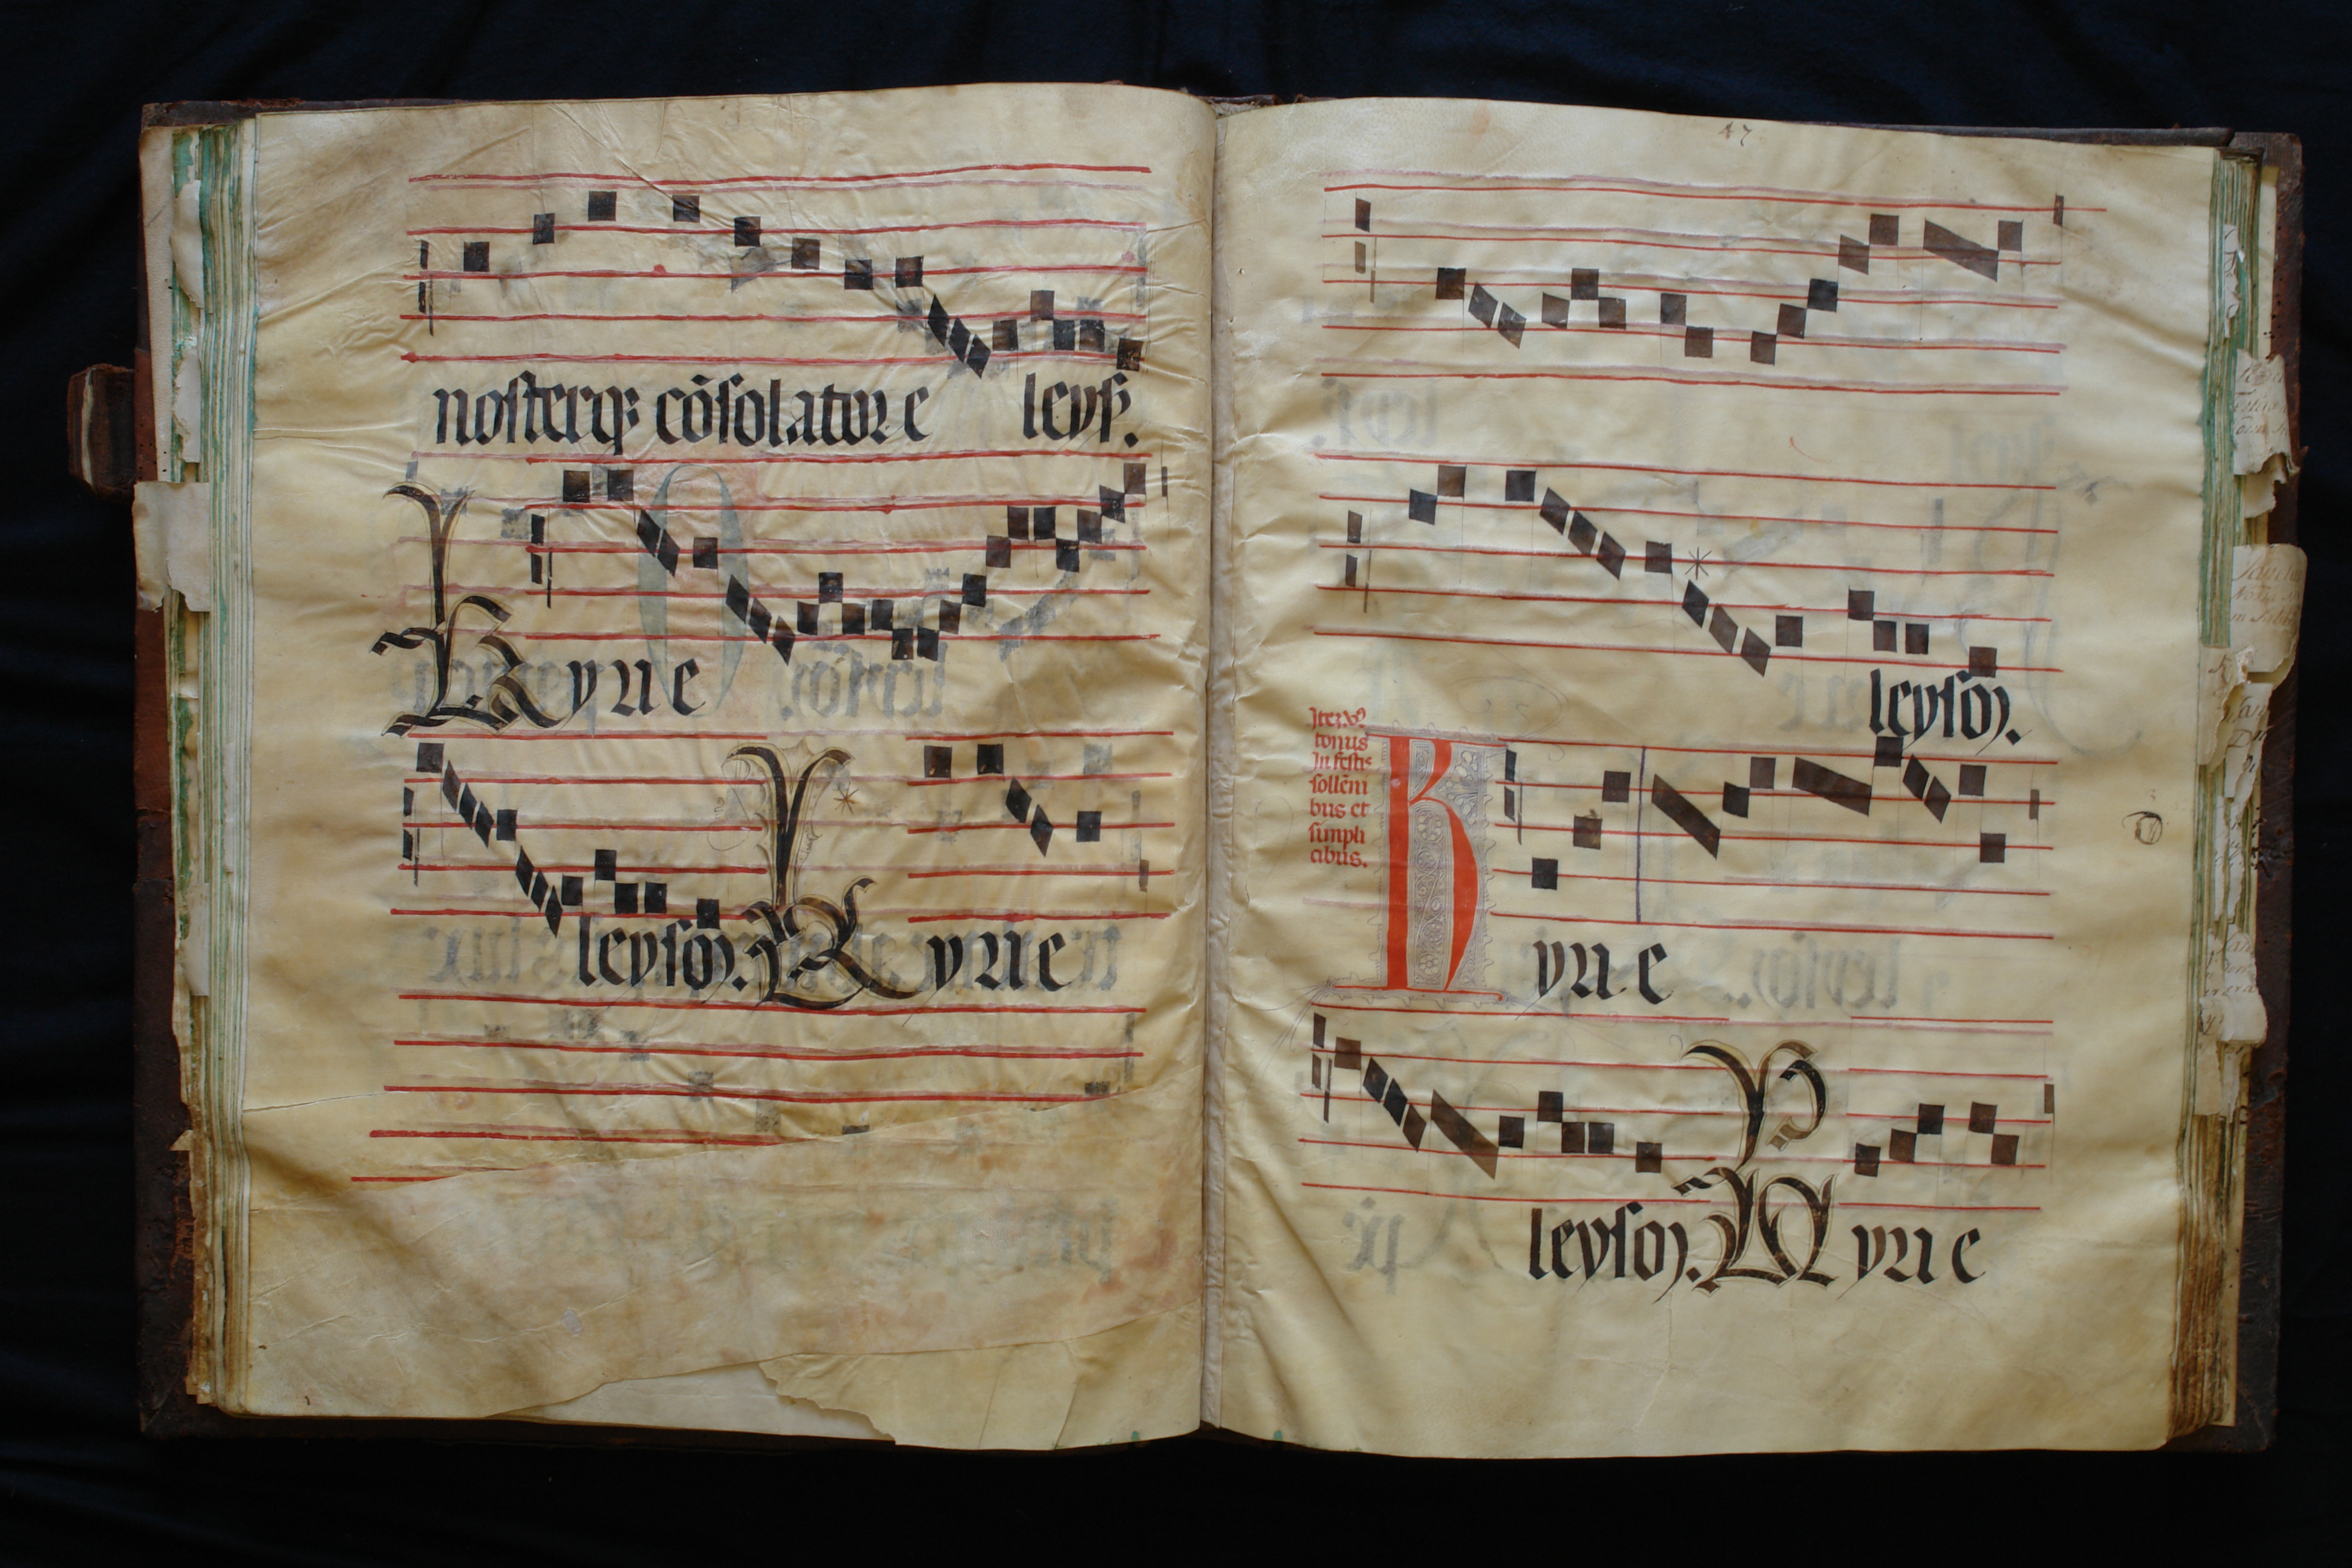 nosterq; cōsolator e leys.
Kyrie
leysoȝ. Kyrie
47
leysoȝ.
Itez
tonus
In festis
sollēni
bus et
simpli
cibus.
Kyrie
leysoȝ. Kyrie